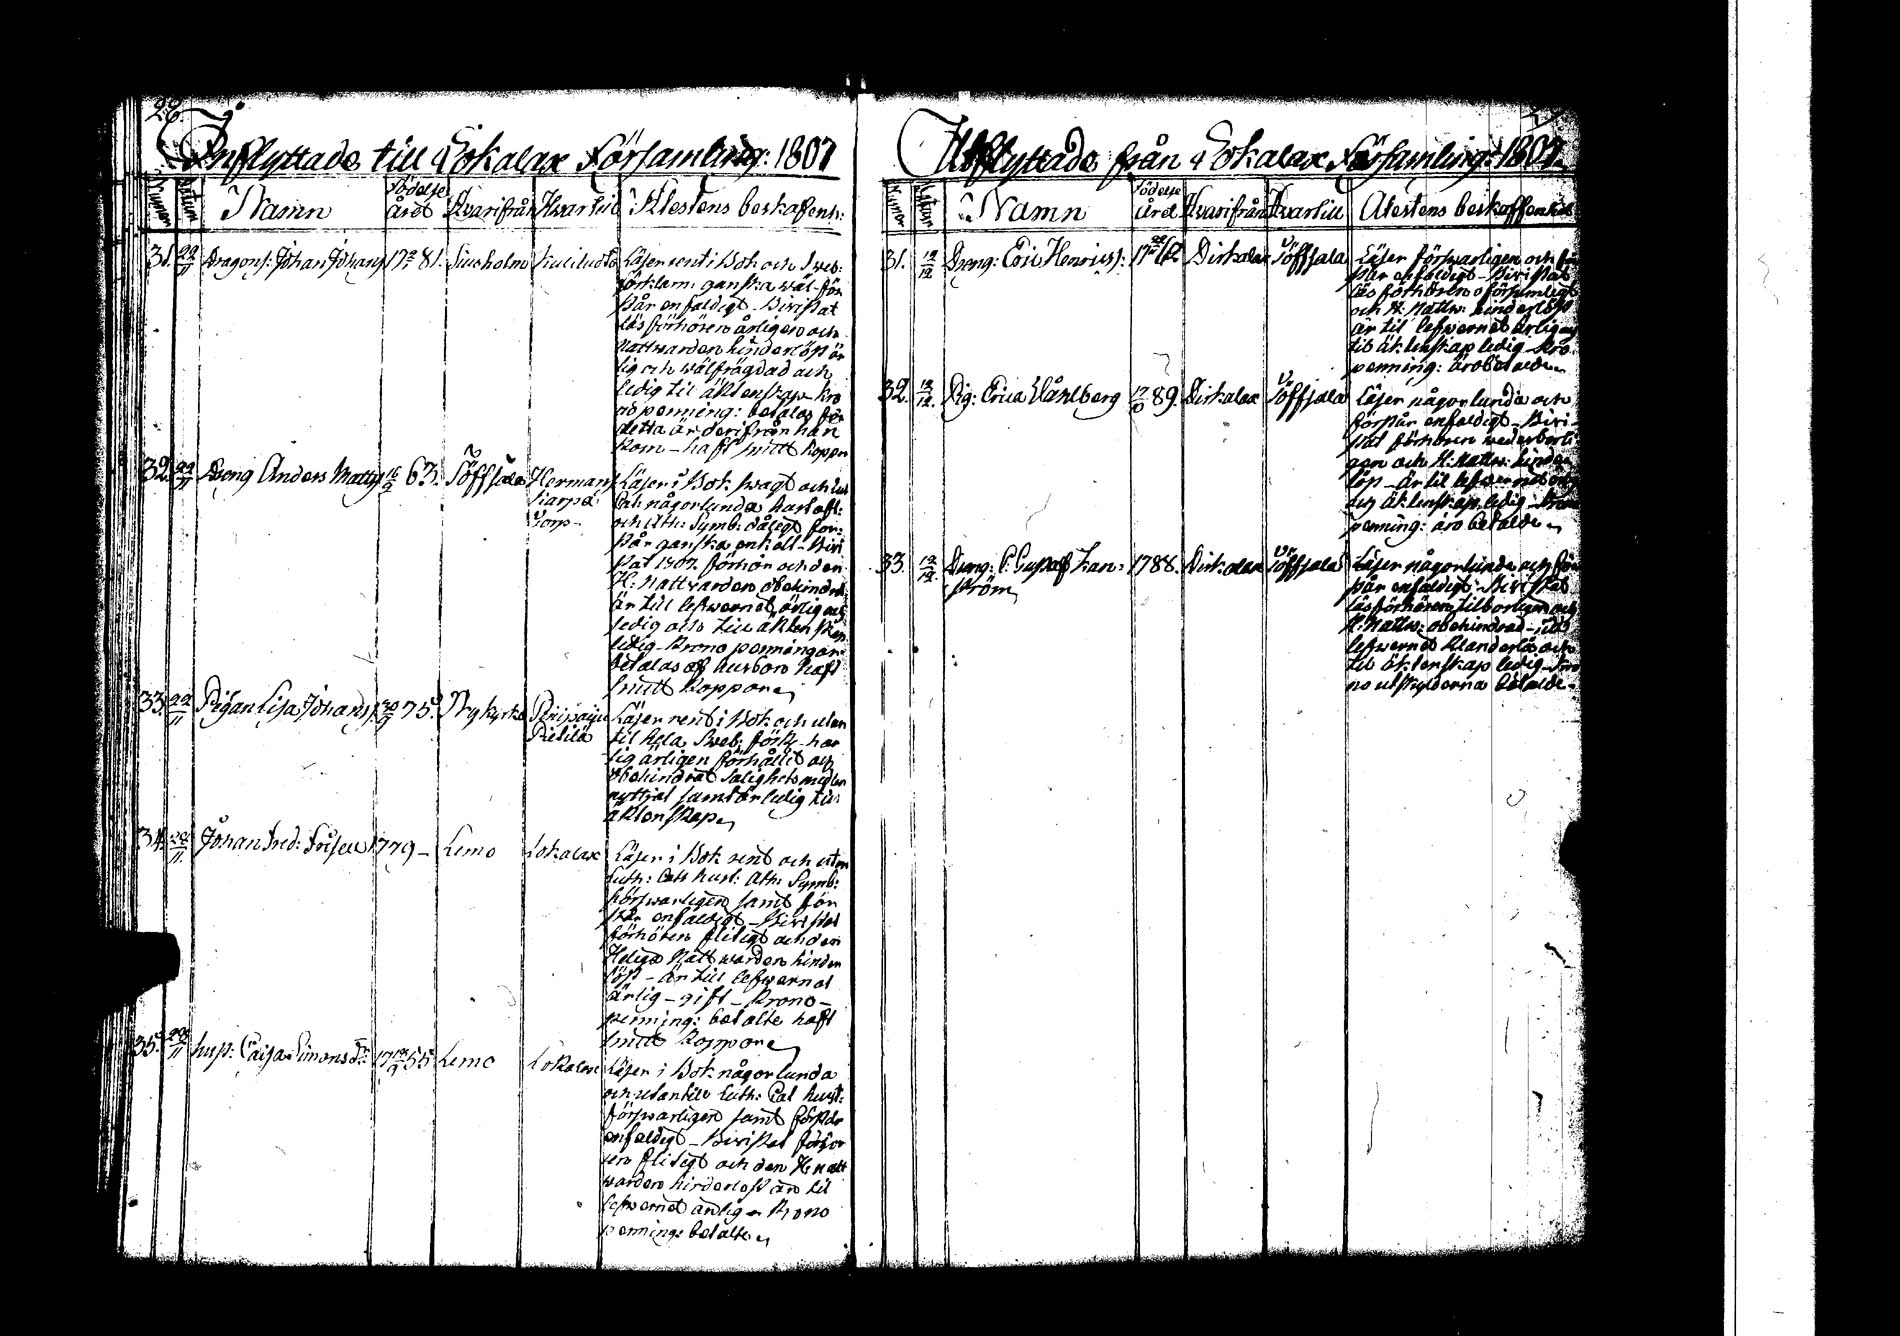 26.
Inflyttade till Lokalax Församling: 1807
Numer Datum Namn Födelse Året Hvarifrån Hvartill Atestens beskafenh:
31. 22/11 Dragons: Johan Johans 17 81. Kuliluoto Läser rent i Bok och Sveb:
förklarn: ganska wäl för
står enfaldigt. Bivistat
Läs förhören årligen och
Nattwarden hinderlöst är
lig och wälfrägdad och
ledig til äktenskap. Kro
nopenning: betalas för
detta år derifrån han
kom – haft smitt koppor
32. 22/11 Dreng Anders Matts 16/9 63. Töffsala Hermans Läser i Bok swagt och Lut
Karpa Cat: någorlunda hustafl:
Torp – och Ath: Symb: dåligt för:
står ganska enkelt – Bivi
stat 1807 förhör och den
H: Nattvarden obehindrat
är till lefwernet ärlig och
ledig till äkten skap
ledig – Krono penningar
betalas af husbon haft
smitt koppor
33. 22/11 Pigan Lisa Johans 30/9 75. Nykyrko Läser rent i Bok och utan
Pietilä til hela Sveb: förk – har
sig ärligen förhållit och
obehindrat Salighets medlen
nyttjat samt är ledig till
äktenskap
34. 22/11 Johan Fred: 1779 – Lemo Lokalax Läser i Bok rent och utan
Luth: Cat: hust: Ath: Symb:
försvarligen samt för
står enfaldigt – Bivistat
förhören flitigt och den
Heliga Nattwarden hinder
löst – är till lefwernet
ärlig – gift – Krono –
penning: betalte haft
smitt koppor
35. 22/11 hust: Caisa Simons dr: 17 55 Lemo Lokalax Läser i Bok någorlunda
och utantill Luth: Cat hust:
försvarligen samt förstår
enfaldigt – Bivistat förhör
en flitigt och den H. natt
warden hinderlöst är til
lefwernet ärlig – Krono
penning: betalte
27
Utflyttade från Lokalax Församling: 1807.
Numer Datum Namn Födelse Året Hvarifrån Hvartill Atestens beskaffenhet
31. 12/12 Dreng: Eric Henricss: Dirkalax Töffsala Läser försvarligen och för
står enfaldigt – Bivistat
Läs förhören
och H: Nattw: hinderlöst
är til lefwernet ärlig och
til äktenskap ledig – Kro
penning: äro betalde
32. 12/12. Pig: Erica Wåhlberg 17/10 89. Dirkalax Töffsala Läser någorlunda och
förstår enfaldigt – Bivi –
stat förhören wederbörli
gen och H: Nattw: hinder
löst – är til lefwernet ärlig
och äktenskap ledig – Krono
penning: äro betalde
33. 12/12. Dreng: C: Gustaf Kan= 1788. Dirkalax Töffsala Läser någorlunda och för
ström står enfaldigt: Bivistat
Läsförhören tilbörligen och
H: Nattw: obehindrad – til
lefwernet klanderlös och
til äktenskap ledig – Kro
no utskylderna betalde –